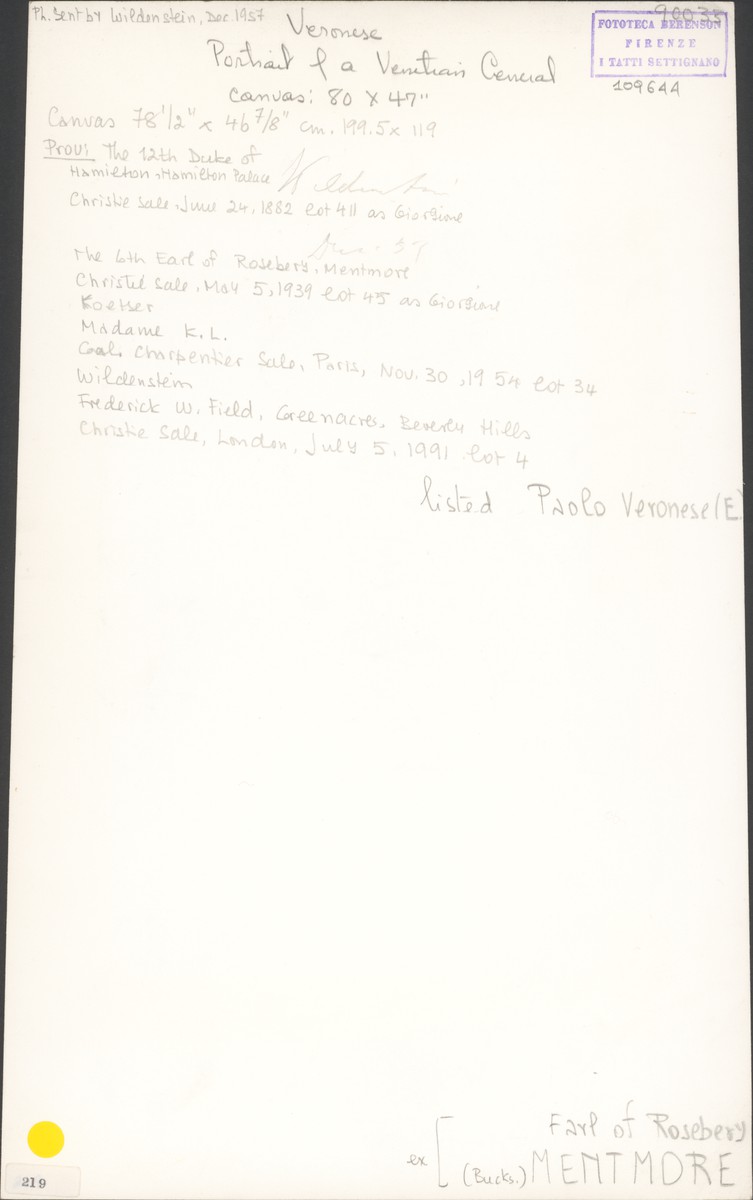 Ph. Sent by Wildenstein, Dec. 1957
90035
Veronese
FOTOTECA BERENSON
FIRENZE
I TATTI SETTIGNANO
109644
Portrait of a Venetian General
canvas: 80 X 47"
Canvas 78 1/2" x 46 7/8" cm. 199.5 x 119
Prov: The 12th Duke of
Hamilton, Hamilton Palace
Wildenstein
Christie Sale, June 24, 1882 lot 411 as Giorgione
Dec. 57
The 6th Earl of Rosebery, Mentmore
Christie Sale, May 5, 1939 lot 45 as Giorgione
Koetser
Madame K. L.
Gal. Charpentier Sale, Paris, Nov. 30, 1954 lot 34
Wildenstein
Frederick W. Field, Greenacres, Beverly Hills
Christie Sale, London, July 5, 1991 lot 4
listed Paolo Veronese (E)
Earl of Rosebery
ex [ (Bucks.) MENTMORE
219